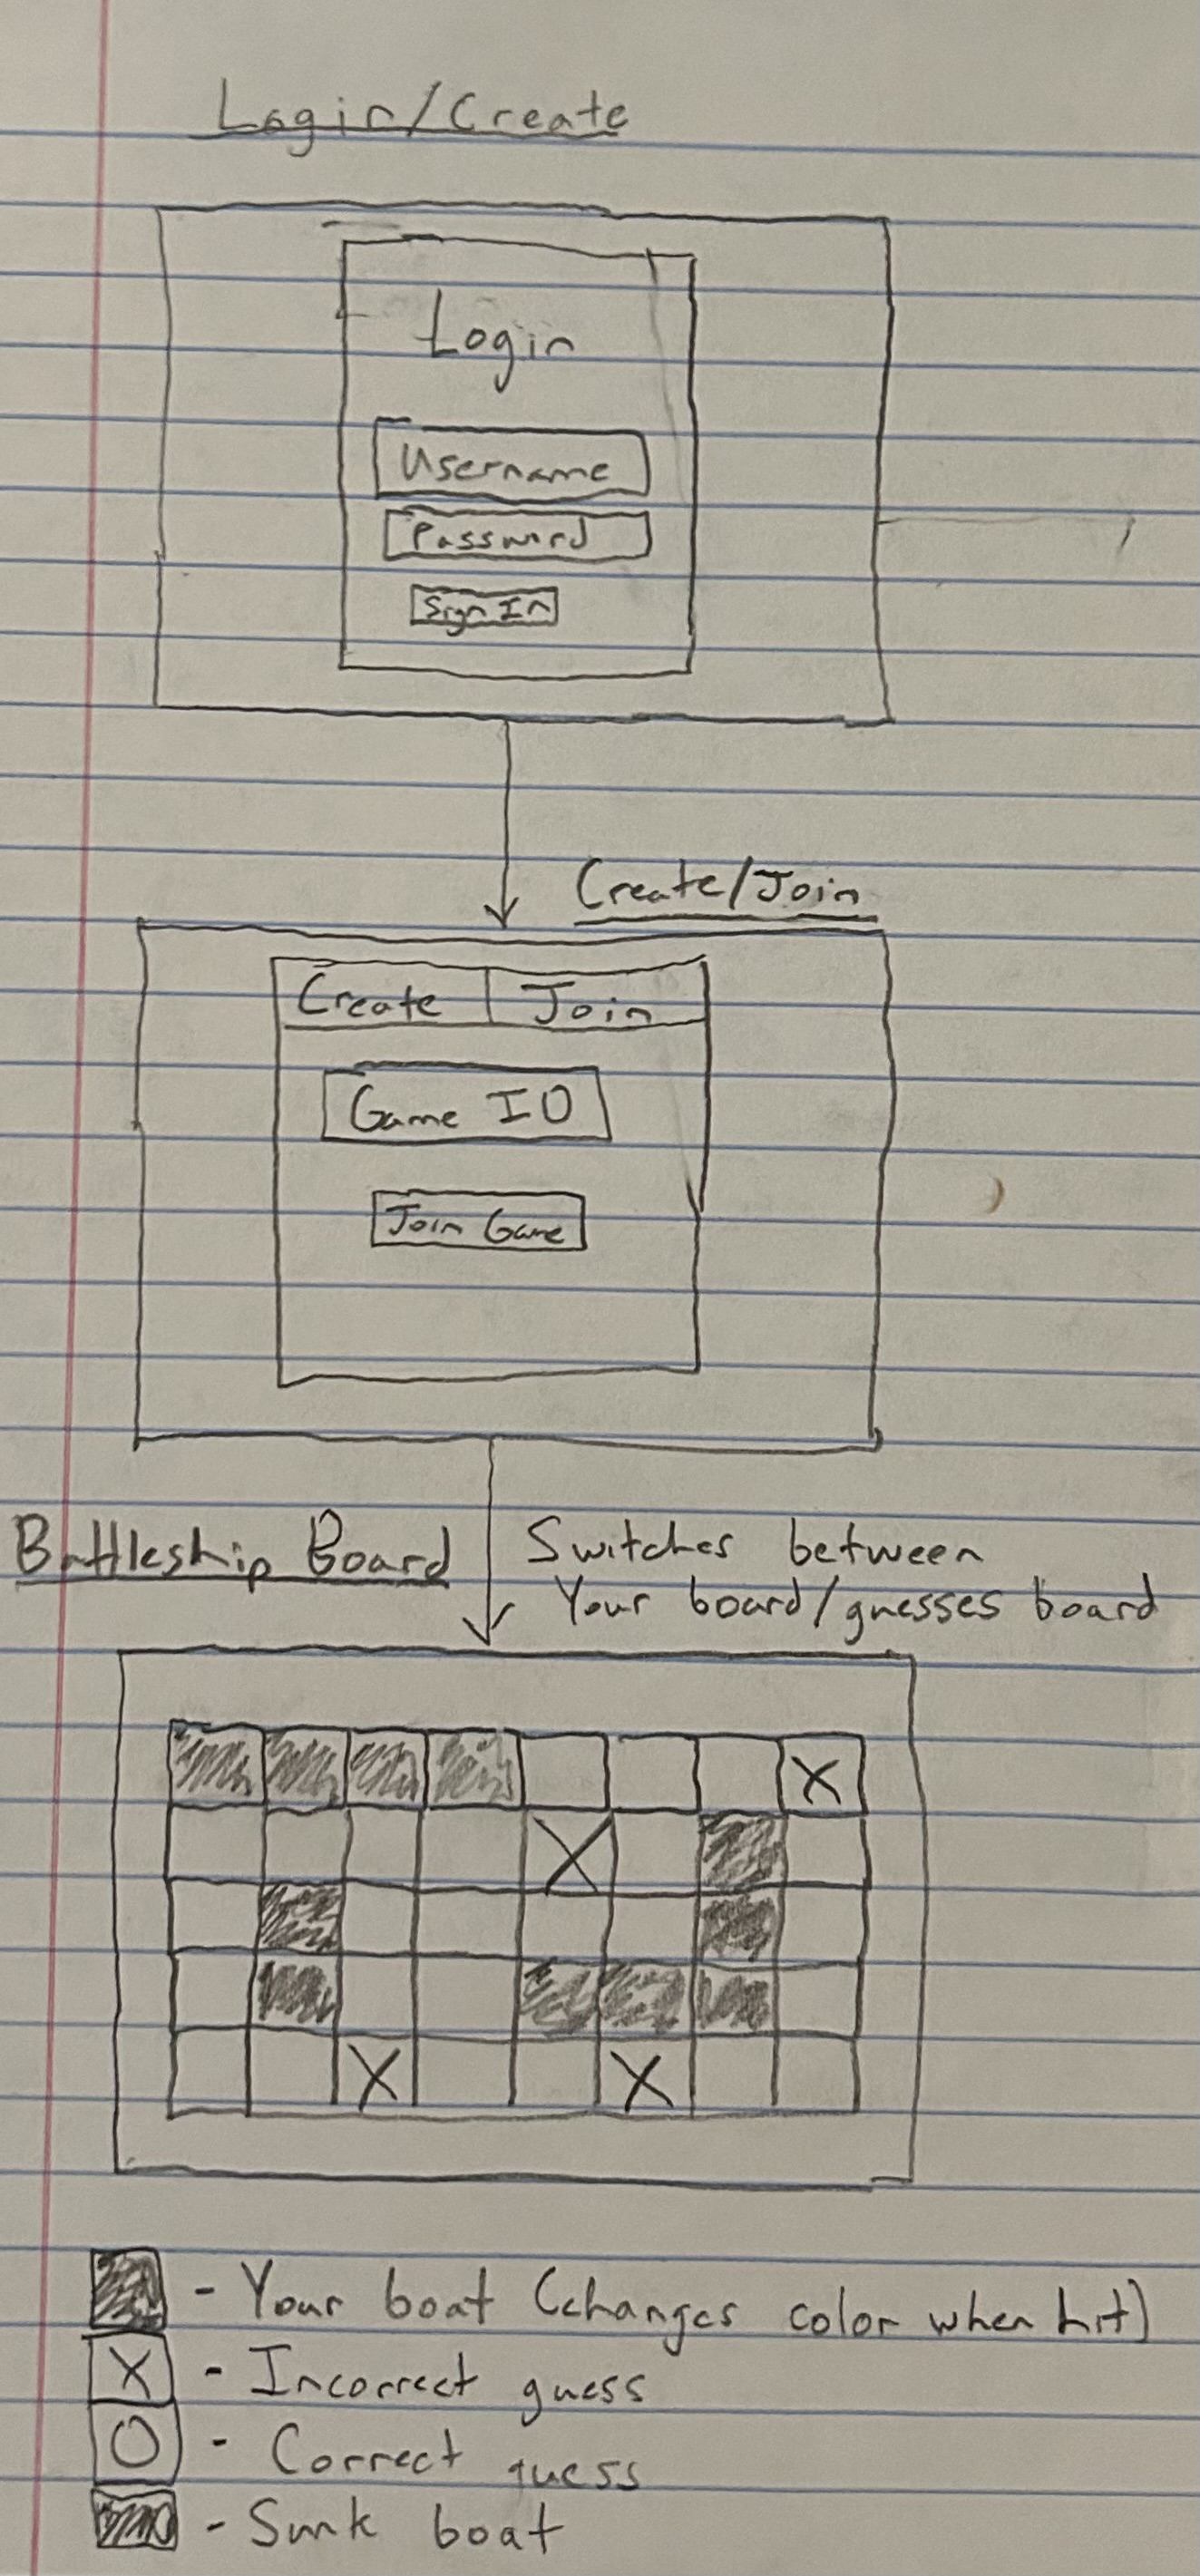 Login/Create
Login
Username
Password
Sign In
Create/Join
Create Join
Game ID
Join Game
Battleship Board
Switches between
Your board/guesses board
X
X
X X
- Your boat (changes color when hit)
X - Incorrect guess
O - Correct guess
- Sunk boat